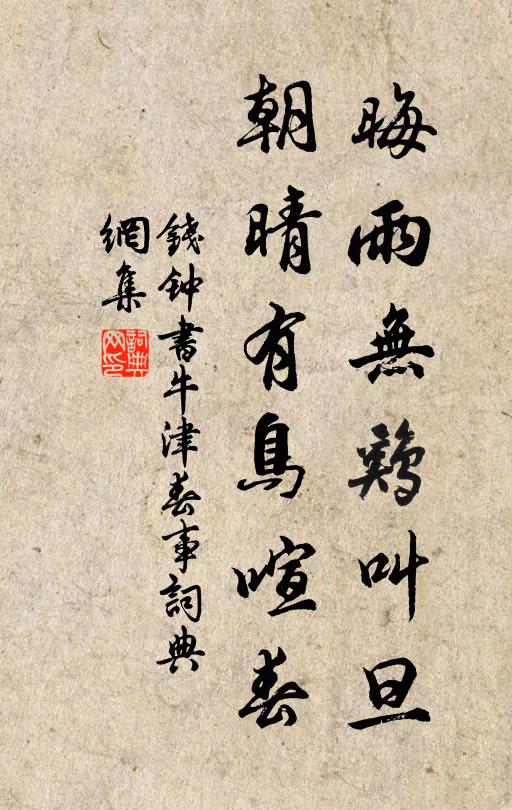 晦雨無鷄叫旦
朝晴有鳥喧春
錢钟書牛津春事詞典
網集
詞典
网印